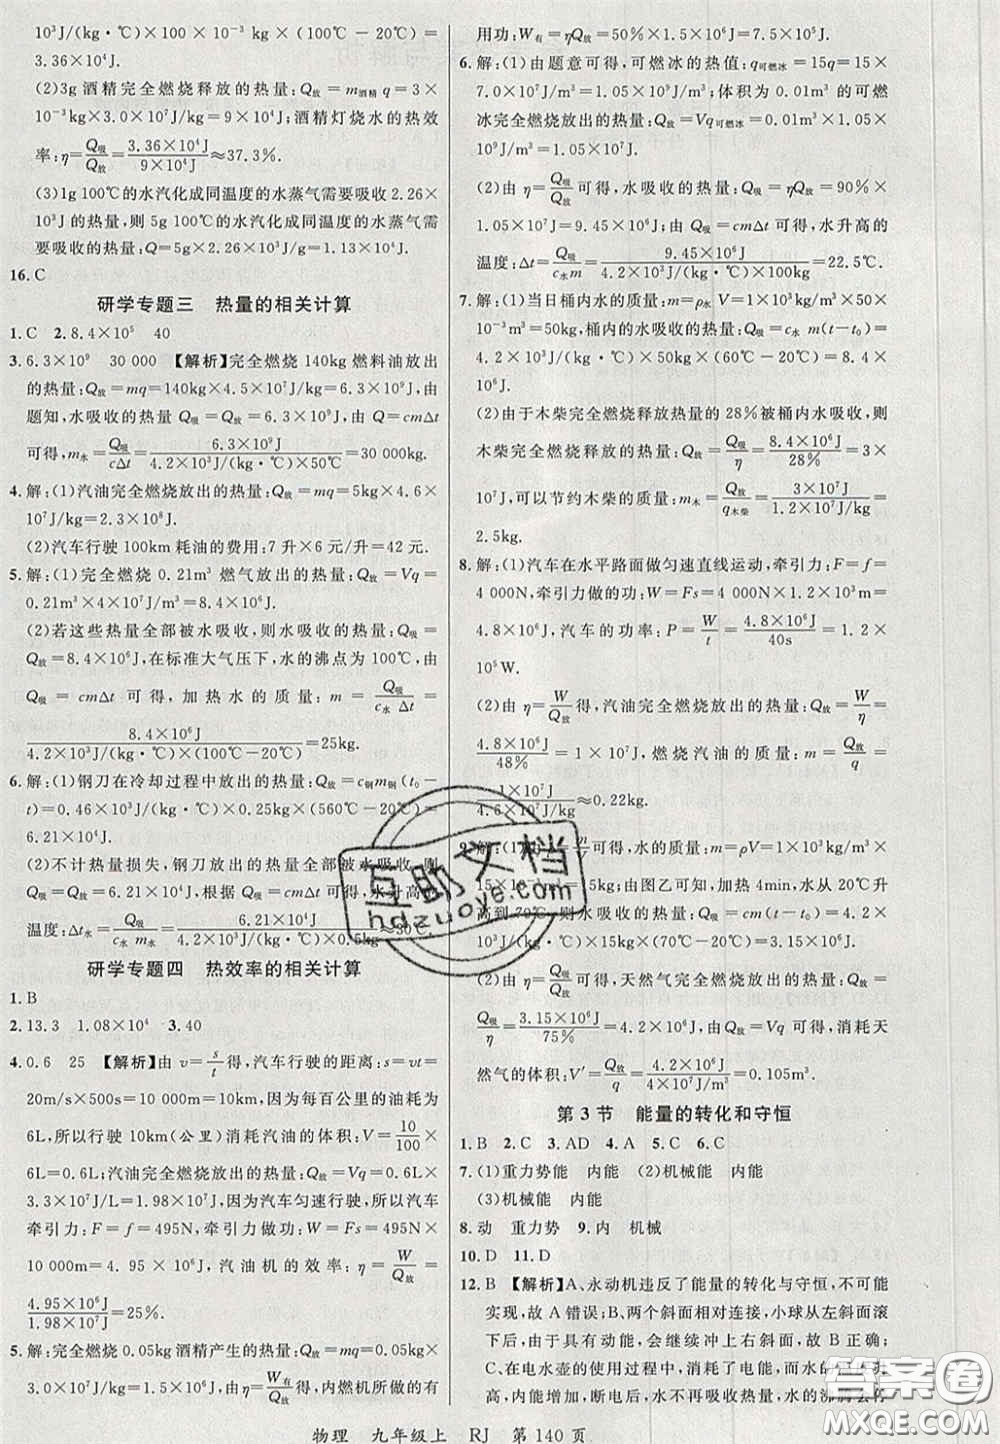 10³J/(kg·℃)×100×10⁻³kg×(100℃-20℃)=
3.36×10⁴J.
(2)3g 酒精完全燃烧释放的热量:Q放=m酒精 q=3×
10⁻³kg×3.0×10⁷J/kg=9×10⁴J;酒精灯烧水的热效
率:η=Q吸/Q放=3.36×10⁴J/9×10⁴J≈37.3%.
(3)1g 100℃的水汽化成同温度的水蒸气需要吸收2.26×
10³J的热量,则5g 100℃的水汽化成同温度的水蒸气需
要吸收的热量:Q=5g×2.26×10³J/g=1.13×10⁴J.
16.C
研学专题三 热量的相关计算
1.C 2.8.4×10⁵ 40
3.6.3×10⁹ 30 000 【解析】完全燃烧140kg燃料油放出
的热量:Q放=mq=140kg×4.5×10⁷J/kg=6.3×10⁹J,由
题知,水吸收的热量 Q吸=Q放=6.3×10⁹J,由 Q=cmΔt
可得,m水=Q吸/cΔt=6.3×10⁹J/4.2×10³J/(kg·℃)×50℃=30 000kg.
4.解:(1)汽油完全燃烧放出的热量:Q放=mq=5kg×4.6×
10⁷J/kg=2.3×10⁸J.
(2)汽车行驶100km耗油的费用:7升×6元/升=42元.
5.解:(1)完全燃烧 0.21m³ 燃气放出的热量:Q放=Vq=
0.21m³×4×10⁷J/m³=8.4×10⁶J.
(2)若这些热量全部被水吸收,则水吸收的热量:Q吸=
Q放=8.4×10⁶J,在标准大气压下,水的沸点为100℃,由
Q吸=cmΔt 可得,加热水的质量:m=Q吸/c水 Δt=
8.4×10⁶J/4.2×10³J/(kg·℃)×(100℃-20℃)=25kg.
6.解:(1)钢刀在冷却过程中放出的热量:Q放=c钢m钢(t₀-
t)=0.46×10³J/(kg·℃)×0.25kg×(560℃-20℃)=
6.21×10⁴J.
(2)不计热量损失,钢刀放出的热量全部被水吸收,则
Q吸=Q放=6.21×10⁴J,根据Q吸=cmΔt可得,水升高的
温度:Δt水=Q吸/c水 m水=6.21×10⁴J/4.2×10³J/(kg·℃)×0.5kg≈30℃.
研学专题四 热效率的相关计算
1.B
2.13.3 1.08×10⁴ 3.40
4.0.6 25 【解析】由 v=s/t得,汽车行驶的距离:s=vt=
20m/s×500s=10 000m=10km,因为每百公里的油耗为
6L,所以行驶10km(公里)消耗汽油的体积:V=10/100×
6L=0.6L;汽油完全燃烧放出的热量:Q放=Vq=0.6L×
3.3×10⁷J/L=1.98×10⁷J,因为汽车匀速行驶,所以汽车
牵引力:F=f=495N,牵引力做功:W=Fs=495N×
10 000m=4.95×10⁶J,汽油机的效率:η=W/Q放=
4.95×10⁶J/1.98×10⁷J=25%.
5.解:完全燃烧0.05kg酒精产生的热量:Q放=mq=0.05kg×
3.0×10⁷J/kg=1.5×10⁶J,由η=W有/Q放得,内燃机所做的有
用功:W有=ηQ放=50%×1.5×10⁶J=7.5×10⁵J.
6.解:(1)由题意可得,可燃冰的热值:q可燃冰=15q=15×
7.0×10⁷J/m³=1.05×10⁹J/m³;体积为0.01m³的可燃
冰完全燃烧放出的热量:Q放=Vq可燃冰=0.01m³×1.05×
10⁹J/m³=1.05×10⁷J.
(2)由 η=Q吸/Q放可得,水吸收的热量:Q吸=ηQ放=90%×
1.05×10⁷J=9.45×10⁶J;由 Q吸=cmΔt 可得,水升高的
温度:Δt=Q吸/c水m=9.45×10⁶J/4.2×10³J/(kg·℃)×100kg=22.5℃.
7.解:(1)当日桶内水的质量:m=ρ水 V=1×10³kg/m³×50×
10⁻³m³=50kg,桶内的水吸收的热量:Q吸=c水 m(t-t₀)=
4.2×10³J/(kg·℃)×50kg×(60℃-20℃)=8.4×
10⁶J.
(2)由于木柴完全燃烧释放热量的28%被桶内水吸收,则
木柴完全燃烧释放的热量:Q放=Q吸/η=8.4×10⁶J/28%=3×
10⁷J,可以节约木柴的质量:m木=Q放/q木柴=3×10⁷J/1.2×10⁷J/kg=
2.5kg.
8.解:(1)汽车在水平路面做匀速直线运动,牵引力:F=f=
4 000N,牵引力做的功:W=Fs=4 000N×1.2×10³m=
4.8×10⁶J,汽车的功率:P=W/t=4.8×10⁶J/40s=1.2×
10⁵W.
(2)由 η=W/Q放得,汽油完全燃烧放出的热量:Q放=W/η=
4.8×10⁶J/48%=1×10⁷J,燃烧汽油的质量:m=Q放/q=
1×10⁷J/4.6×10⁷J/kg≈0.22kg.
9.解:(1)由ρ=m/V可得,水的质量:m=ρV=1.0×10³kg/m³×
15×10⁻³m³=15kg;由图乙可知,加热4min,水从20℃升
高到70℃,则水吸收的热量:Q吸=cm(t-t₀)=4.2×
10³J/(kg·℃)×15kg×(70℃-20℃)=3.15×10⁶J.
(2)由 η=Q吸/Q放可得,天然气完全燃烧放出的热量:Q放=
Q吸/η=3.15×10⁶J/75%=4.2×10⁶J,由 Q放=Vq可得,消耗天
然气的体积:V′=Q放/q=4.2×10⁶J/4×10⁷J/m³=0.105m³.
第3节 能量的转化和守恒
1.B 2.C 3.AD 4.A 5.C 6.C
7.(1)重力势能 内能 (2)机械能 内能
(3)机械能 内能
8.动 重力势 9.内 机械
10.D 11.D
12.B 【解析】A、永动机违反了能量的转化与守恒,不可能
实现,故A错误;B、两个斜面相对连接,小球从左斜面滚
下后,由于具有动能,会继续冲上右斜面,故B正确;
C、在电水壶的使用过程中,消耗了电能,而水的温度升
高,内能增加,断电后,水不再吸收热量,水的沸腾会停
物理 九年级上 RJ 第140页
互助文档
hdzuoye.com
答案圈
MXQE.COM